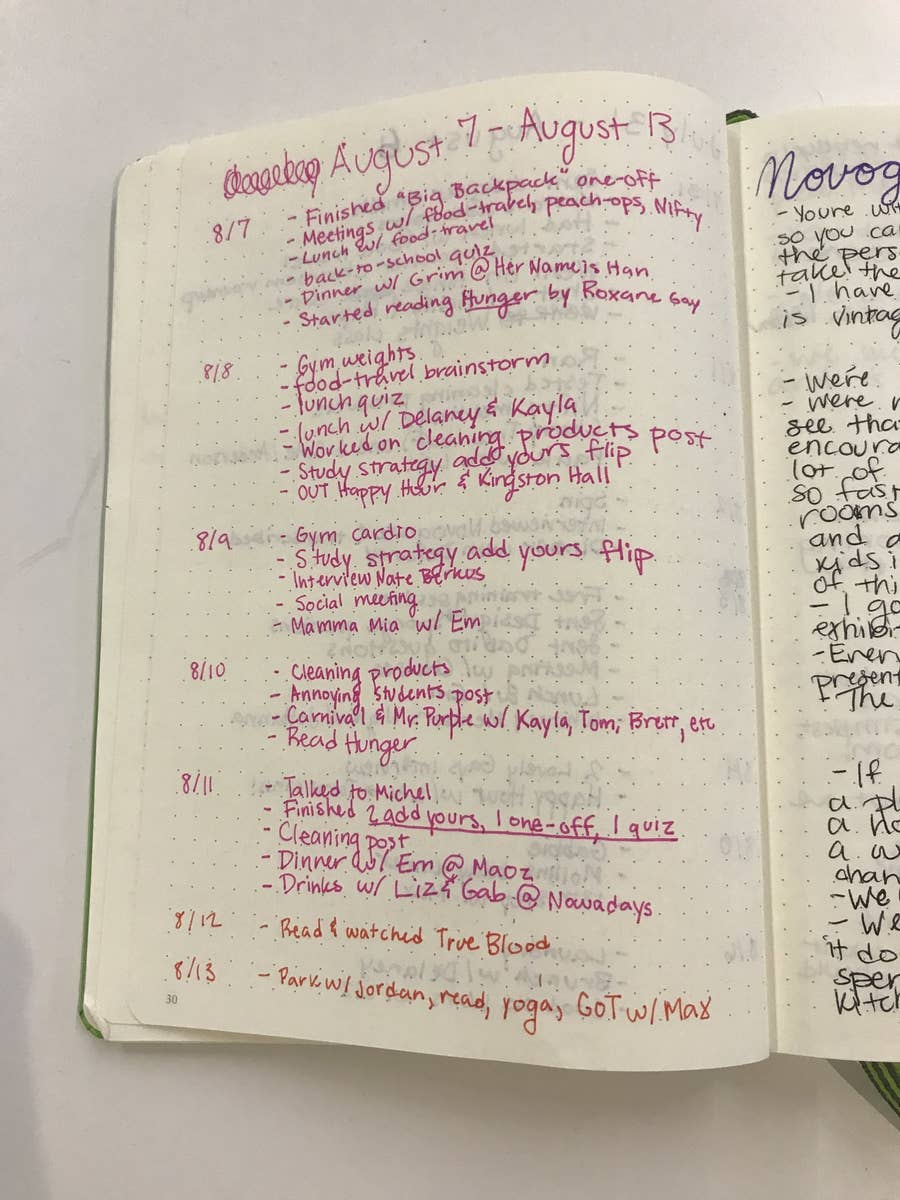 August 7 - August 13
8/7 - Finished "Big Backpack" one-off
- Meetings w/ food-travel, peach-ops, Nifty
- Lunch w/ food-travel
- back-to-school quiz
- Dinner w/ Grim @ Her Name is Han
- Started reading Hunger by Roxane Gay
8/8 - Gym weights
- food-travel brainstorm
- lunch quiz
- lunch w/ Delaney & Kayla
- Worked on cleaning products post
- Study strategy add yours flip
- OUT Happy Hour & Kingston Hall
8/9 - Gym cardio
- Study strategy add yours flip
- Interview Nate Berkus
- Social meeting
- Mamma Mia w/ Em
8/10 - Cleaning products
- Annoying students post
- Carnival & Mr. Purple w/ Kayla, Tom, Brett, etc
- Read Hunger
8/11 - Talked to Michel
- Finished 2 add yours, 1 one-off, 1 quiz
- Cleaning post
- Dinner w/ Em @ Maoz
- Drinks w/ Liz & Gab @ Nowadays
8/12 - Read & watched True Blood
8/13 - Park w/ Jordan, read, yoga, GOT w/ Max
30
Novog
- Youre wi
so you ca
the pers
take the
- I have
is vintag
- were
- were
see tha
encoura
lot of
so fast
rooms
and a
kids i
of thi
- I go
exhibi
- Every
present
- The
- If
a pl
a ho
a w
chan
- We
- We
it do
spen
kitch